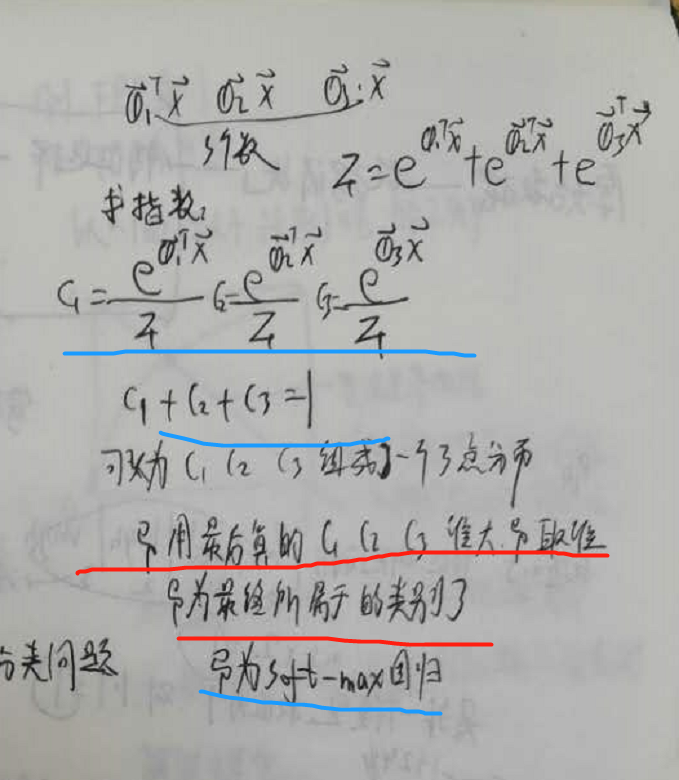 θ₁ᵀx⃗ θ₂ᵀx⃗ θ₃·x⃗
3个数 Z=e^{θ₁ᵀx⃗}+e^{θ₂ᵀx⃗}+e^{θ₃ᵀx⃗}
求指数:
C₁=e^{θ₁ᵀx⃗}/Z C₂=e^{θ₂ᵀx⃗}/Z C₃=e^{θ₃x⃗}/Z
C₁+C₂+C₃=1
可认为 C₁ C₂ C₃ 组成了一个3点分布
即用最后算的 C₁ C₂ C₃ 谁大 即取谁
即为最终所属于的类别了
分类问题 即为soft-max回归